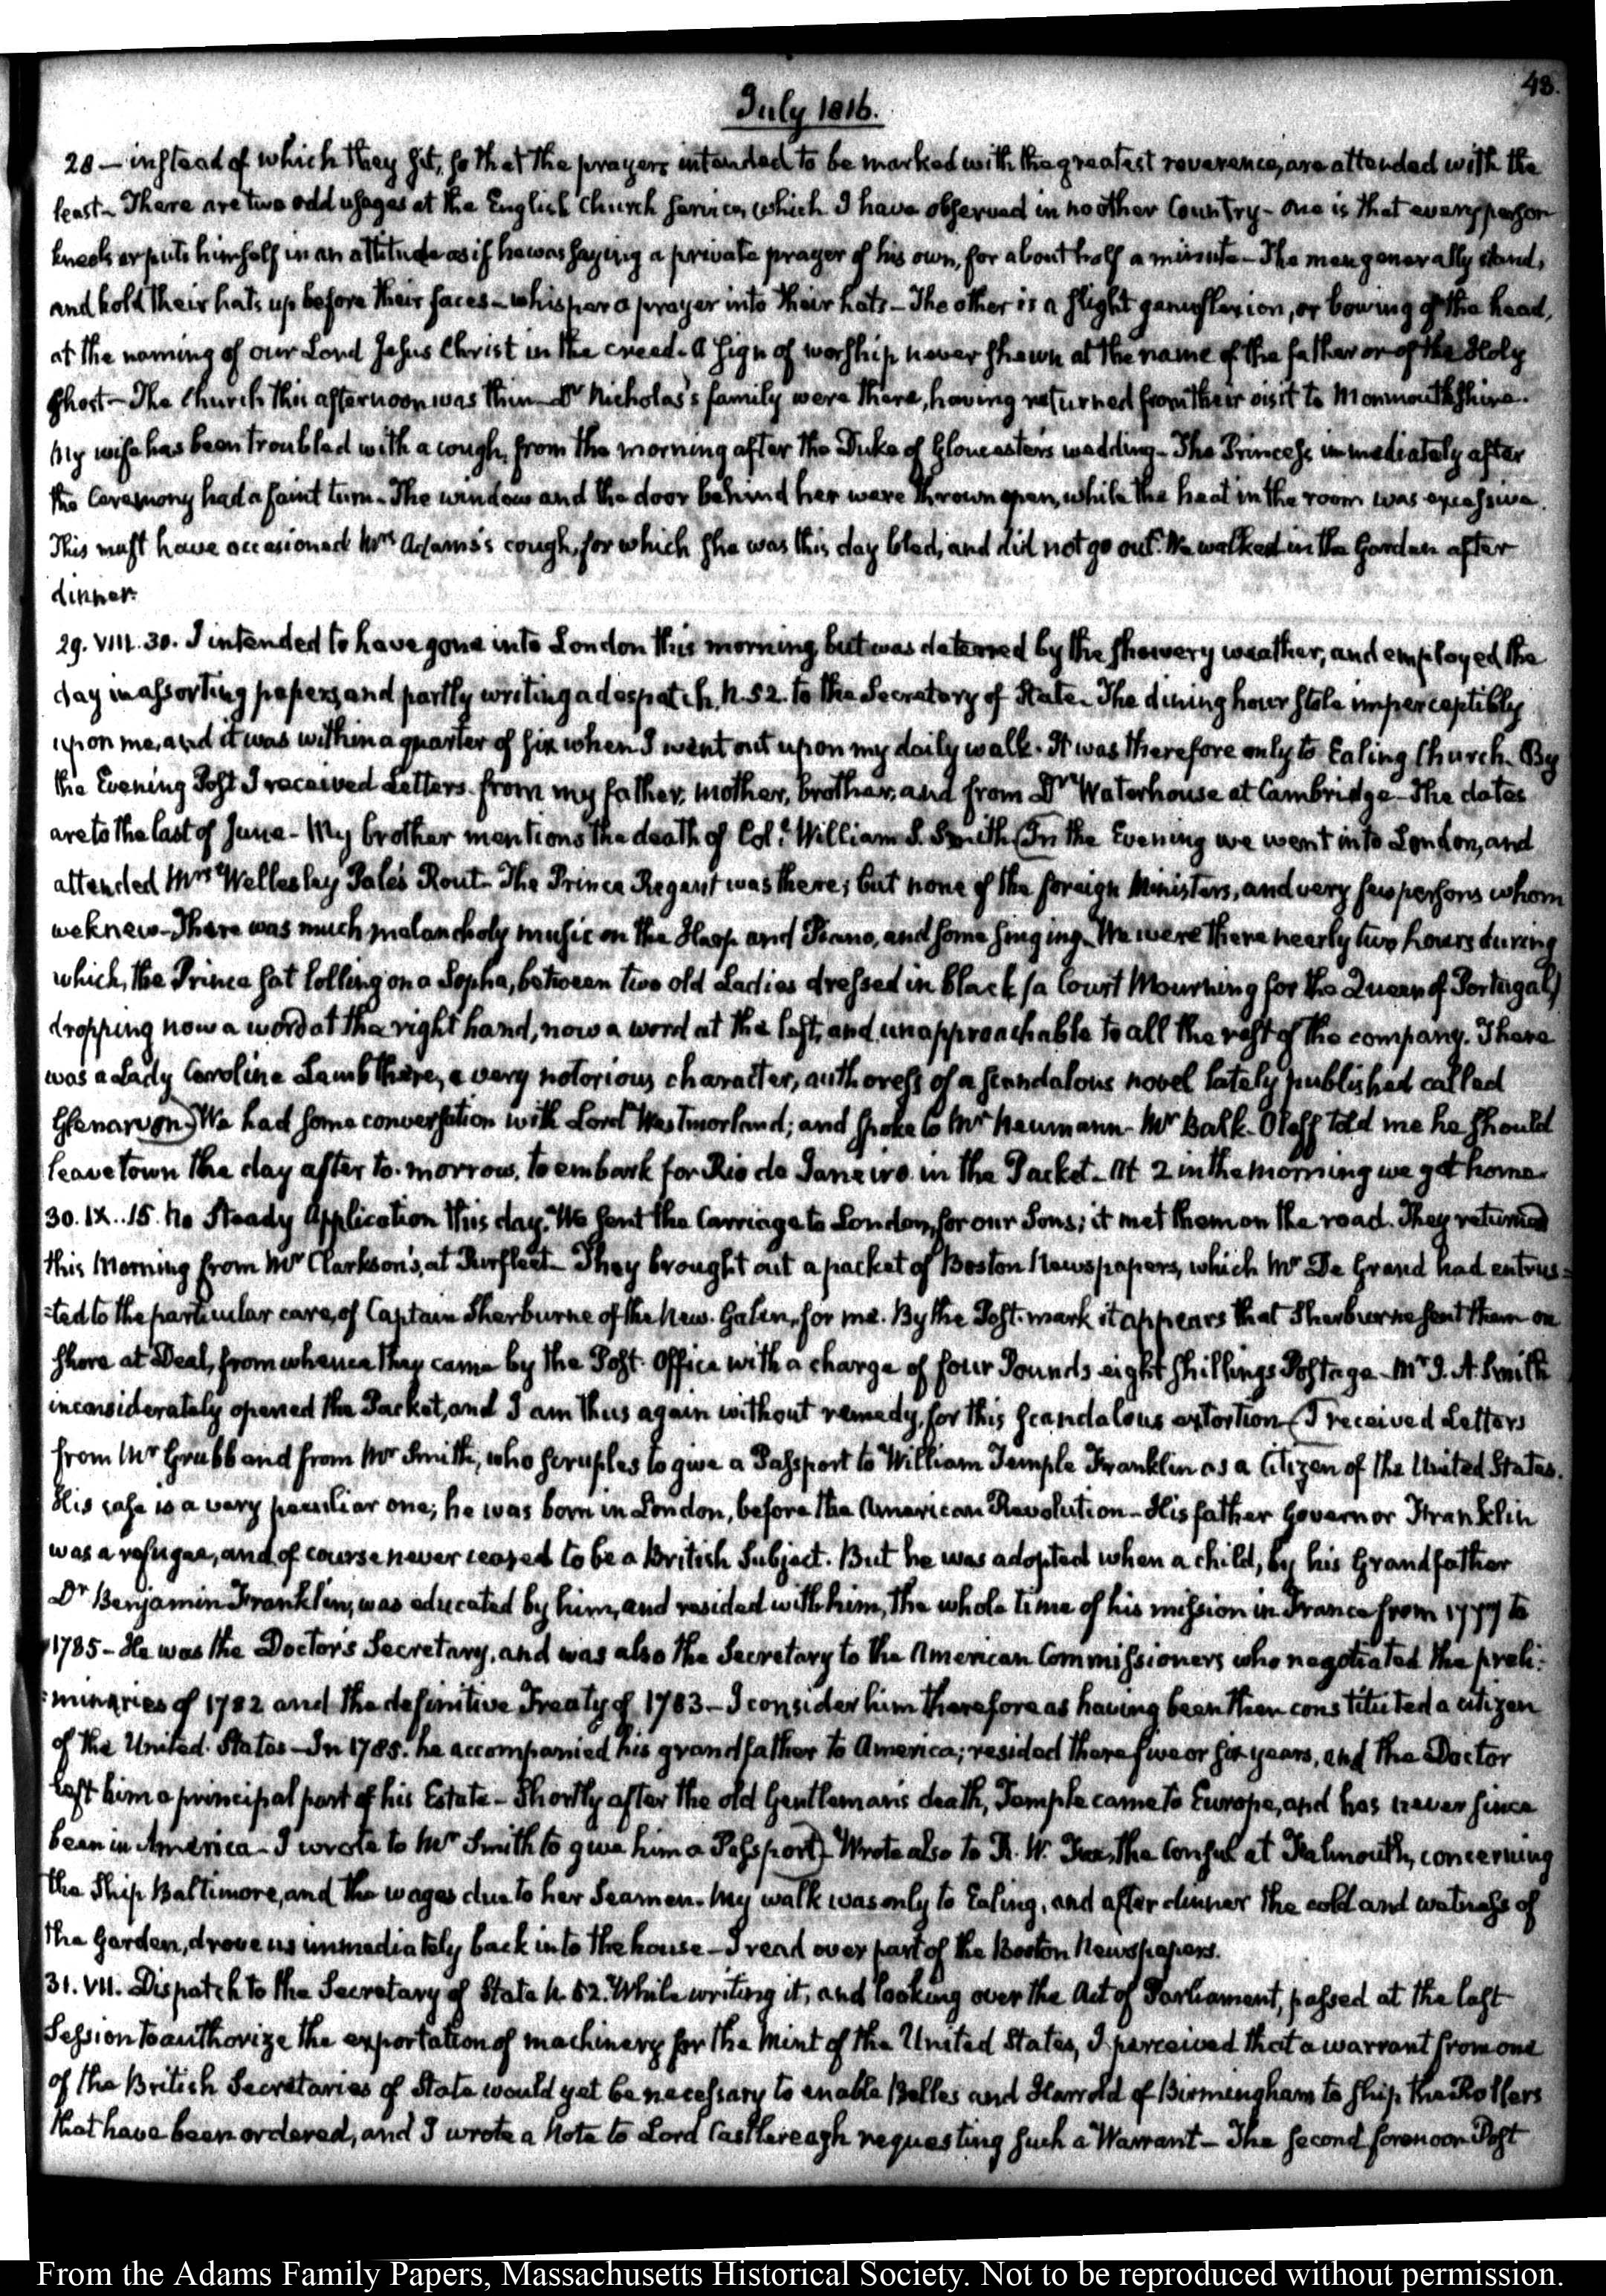 48.
July 1816.
28 — instead of which they sit, so that the prayers intended to be marked with the greatest reverence, are attended with the
least – There are two odd usages at the English Church service, which I have observed in no other Country – one is that every person
kneels or puts himself in an attitude as if he was saying a private prayer of his own, for about half a minute – The men generally stand,
and hold their hats up before their faces – whisper a prayer into their hats – The other is a slight genuflexion, or bowing of the head,
at the naming of our Lord Jesus Christ in the creed. A sign of worship never shewn at the name of the father or of the Holy
Ghost – The Church this afternoon was thin – Dr Nicholas's family were there, having returned from their visit to Monmouthshire.
My wife has been troubled with a cough, from the morning after the Duke of Gloucester's wedding – The Princess immediately after
the Ceremony had a faint turn – The window and the door behind her were thrown open, while the heat in the room was excessive.
This must have occasioned Mrs Adams's cough, for which she was this day bled, and did not go out. We walked in the Garden after
dinner.
29. VIII. 30. I intended to have gone into London this morning but was deterred by the showery weather, and employed the
day in assorting papers, and partly writing a despatch, N. 52. to the Secretary of State – The dining hour stole imperceptibly
upon me, and it was within a quarter of six when I went out upon my daily walk. It was therefore only to Ealing Church. By
the Evening Post I received Letters from my father, mother, brother, and from Dr Waterhouse at Cambridge – The dates
are to the last of June – My brother mentions the death of Col. William S. Smith (In the Evening we went into London, and
attended Mrs Wellesley Pole's Rout – The Prince Regent was there; but none of the foreign Ministers, and very few persons whom
we knew – There was much melancholy music on the Harp and Piano, and some singing. We were there nearly two hours during
which, the Prince sat lolling on a Sopha, between two old Ladies dressed in black (a Court Mourning for the Queen of Portugal)
dropping now a word at the right hand, now a word at the left, and unapproachable to all the rest of the company. There
was a Lady Caroline Lamb there, a very notorious character, authoress of a scandalous novel lately published called
Glenarvon) We had some conversation with Lord Westmorland; and spoke to Mr Neumann – Mr Balk-Poleff told me he should
leave town the day after to-morrow, to embark for Rio de Janeiro in the Packet – At 2 in the morning we got home.
30. IX..15. No Steady Application this day. We sent the Carriage to London, for our Sons; it met them on the road. They returned
this Morning from Mr Clarkson's, at Purfleet – They brought out a packet of Boston Newspapers, which Mr De Grand had entrus=
=ted to the particular care, of Captain Sherburne of the New-Galen, for me. By the Post-mark it appears that Sherburne sent them on
shore at Deal, from whence they came by the Post-Office with a charge of four Pounds eight shillings Postage – Mr J. A. Smith
inconsiderately opened the Packet, and I am thus again without remedy, for this scandalous extortion – (I received Letters
from Mr Grubb and from Mr Smith, who scruples to give a Passport to William Temple Franklin as a Citizen of the United States.
His case is a very peculiar one; he was born in London, before the American Revolution – His father Governor Franklin
was a refugee, and of course never ceased to be a British Subject. But he was adopted when a child, by his Grandfather
Dr Benjamin Franklin, was educated by him, and resided with him, the whole time of his mission in France from 1777 to
1785 – He was the Doctor's Secretary, and was also the Secretary to the American Commissioners who negotiated the preli-
=minaries of 1782 and the definitive Treaty of 1783 – I consider him therefore as having been then constituted a citizen
of the United States – In 1785. he accompanied his grandfather to America; resided there five or six years, and the Doctor
left him a principal part of his Estate – Shortly after the old Gentleman's death, Temple came to Europe, and has never since
been in America – I wrote to Mr Smith to give him a Passport) Wrote also to R. W. Fox, the Consul at Falmouth, concerning
the Ship Baltimore, and the wages due to her Seamen. My walk was only to Ealing, and after dinner the cold and wetness of
the Garden, drove us immediately back into the house – I read over part of the Boston Newspapers.
31. VII. Dispatch to the Secretary of State N. 52. While writing it, and looking over the Act of Parliament, passed at the last
Session to authorize the exportation of machinery for the Mint of the United States, I perceived that a warrant from one
of the British Secretaries of State would yet be necessary to enable Belles and Harrold of Birmingham to ship the Rollers
that have been ordered, and I wrote a Note to Lord Castlereagh requesting such a Warrant – The second forenoon Post
From the Adams Family Papers, Massachusetts Historical Society. Not to be reproduced without permission.